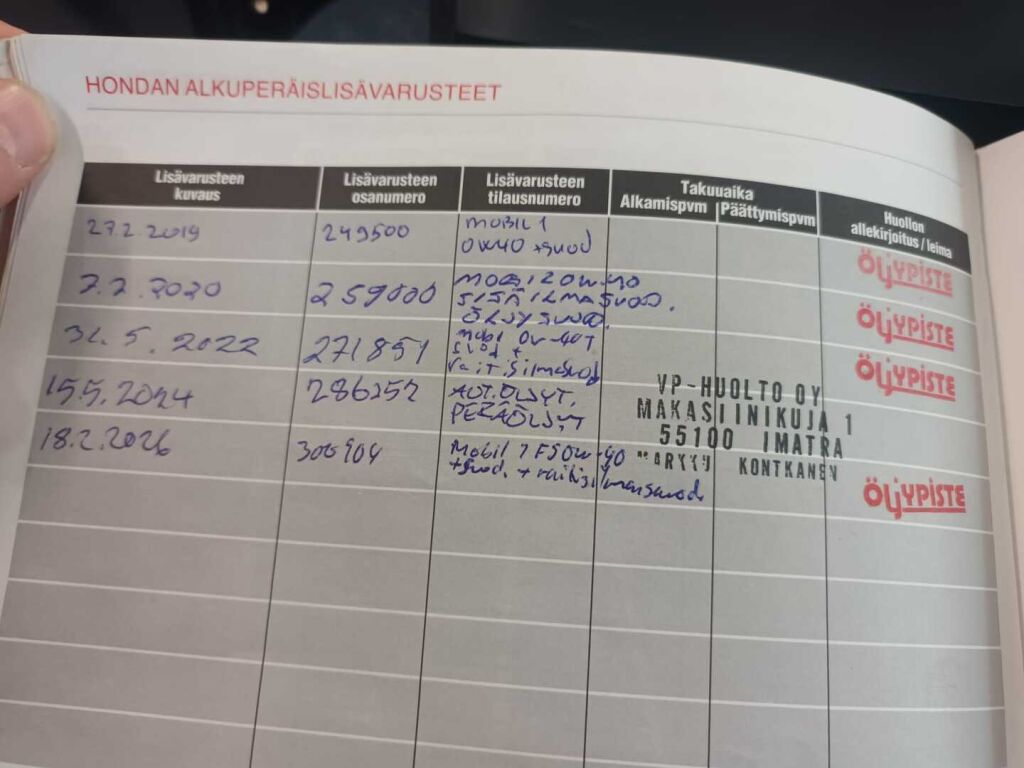 HONDAN ALKUPERÄISLISÄVARUSTEET
Lisävarusteen kuvaus
Lisävarusteen osanumero
Lisävarusteen tilausnumero
Takuuaika
Alkamispvm
Päättymispvm
Huollon allekirjoitus / leima
27.2.2019
249500
MOBIL 1
0W40 + suod
ÖLJYPISTE
7.2.2020
259000
MOBIL 0W-40
SISÄILMASUOD.
ÖLJYSUOD.
ÖLJYPISTE
31.5.2022
271851
Mobil 0W-40T
suod +
Rait.silmasuod
ÖLJYPISTE
15.5.2024
286252
AUT.ÖLJYT,
PERÄÖLJYT
VP-HUOLTO OY
MAKASIINIKUJA 1
55100 IMATRA
MARKKU KONTKANEN
18.2.2026
Mobil 1 FS 0W-40
+suod. + raitisilmansuod.
ÖLJYPISTE